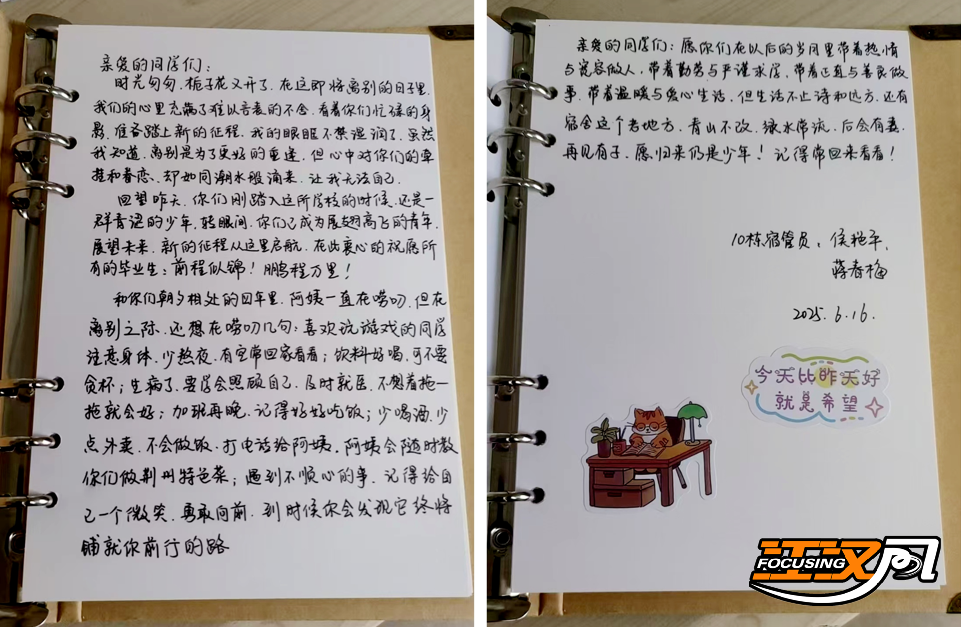 亲爱的同学们：
时光匆匆，栀子花又开了，在这即将离别的日子里，
我们的心里充满了难以言表的不舍，看着你们忙碌的身
影，准备踏上新的征程，我的眼眶不禁湿润了，虽然
我知道，离别是为了更好的重逢，但心中对你们的牵
挂和眷恋，却如同潮水般涌来，让我无法自己。
回望昨天，你们刚踏入这所学校的时候，还是一
群青涩的少年，转眼间，你们已成为展翅高飞的青年，
展望未来，新的征程从这里启航，在此衷心的祝愿所
有的毕业生：前程似锦！鹏程万里！
和你们朝夕相处的四年里，阿姨一直在唠叨，但在
离别之际，还想在唠叨几句：喜欢玩游戏的同学
注意身体，少熬夜，有空常回家看看；饮料好喝，可不要
贪杯；生病了，要学会照顾自己，及时就医，不想着拖一
拖就会好；加班再晚，记得好好吃饭；少喝酒，少
点外卖，不会做饭，打电话给阿姨，阿姨会随时教
你们做荆州特色菜；遇到不顺心的事，记得给自
己一个微笑，勇敢向前，到时候你会发现它终将
铺就你前行的路
亲爱的同学们：愿你们在以后的岁月里带着热情
与宽容做人，带着勤劳与严谨求学，带着正直与善良做
事，带着温暖与爱心生活，但生活不止诗和远方，还有
宿舍这个老地方，青山不改，绿水常流，后会有期，
再见有子，愿归来仍是少年！记得常回来看看！
10栋宿管员：侯艳平，
蒋春梅
2025.6.16.
今天比昨天好
就是希望
江汉风
FOCUSING